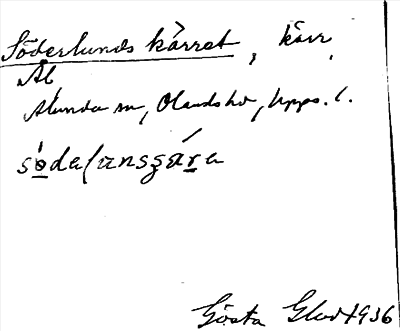 Söderlunds kärret, kärr,
Ål
Alunda sn, Olands hd, Upps. l.
Gösta Glad 1936